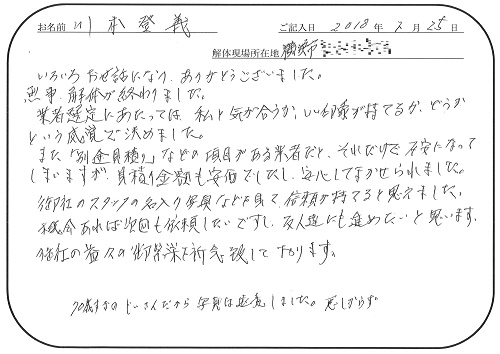 お名前 川本登義 ご記入日 2018年2月25日
解体現場所在地 横浜市
いろいろお世話になり、ありがとうございました。
無事、解体が終わりました。
業者選定にあたっては、私と気が合うか、いい印象が持てるか、どうか
という感覚で決めました。
また「別途見積り」などの項目がある業者だと、それだけで不安になって
しまいますが、見積り金額も安価でしたし、安心してまかせられました。
御社のスタッフの名入り写真などを見て信頼が持てると思えました。
機会あれば次回も依頼したいですし、友人達にも進めたいと思います。
御社の益々の御繁栄を祈念致して下ります。
70歳すぎのじーさんだから写真は遠慮しました。悪しからず